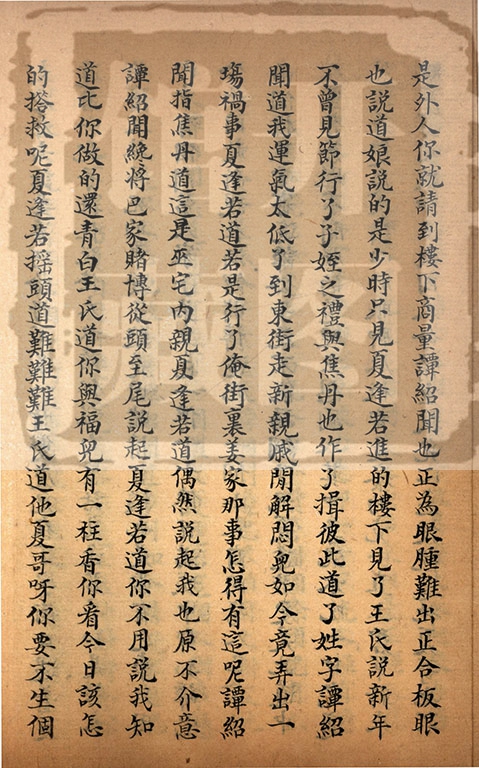 是外人你就請到樓下商量譚紹聞也正為眼腫難出正合板眼
也說道娘說的是少時只見夏逢若進的樓下見了王氏說新年
不曾見節行了子姪之禮與焦丹也作了揖彼此道了姓字譚紹
聞道我運氣太低了到東街走新親戚閒解悶兒如今竟弄出一
塲禍事夏逢若道若是行了俺街裏姜家那事怎得有這呢譚紹
聞指焦丹道這是巫宅內親夏逢若道偶然說起我也原不介意
譚紹聞纔將巴家賭博從頭至尾說起夏逢若道你不用說我知
道比你做的還青白王氏道你與福兒有一柱香你看今日該怎
的搭救呢夏逢若摇頭道難難難王氏道他夏哥呀你要不生個